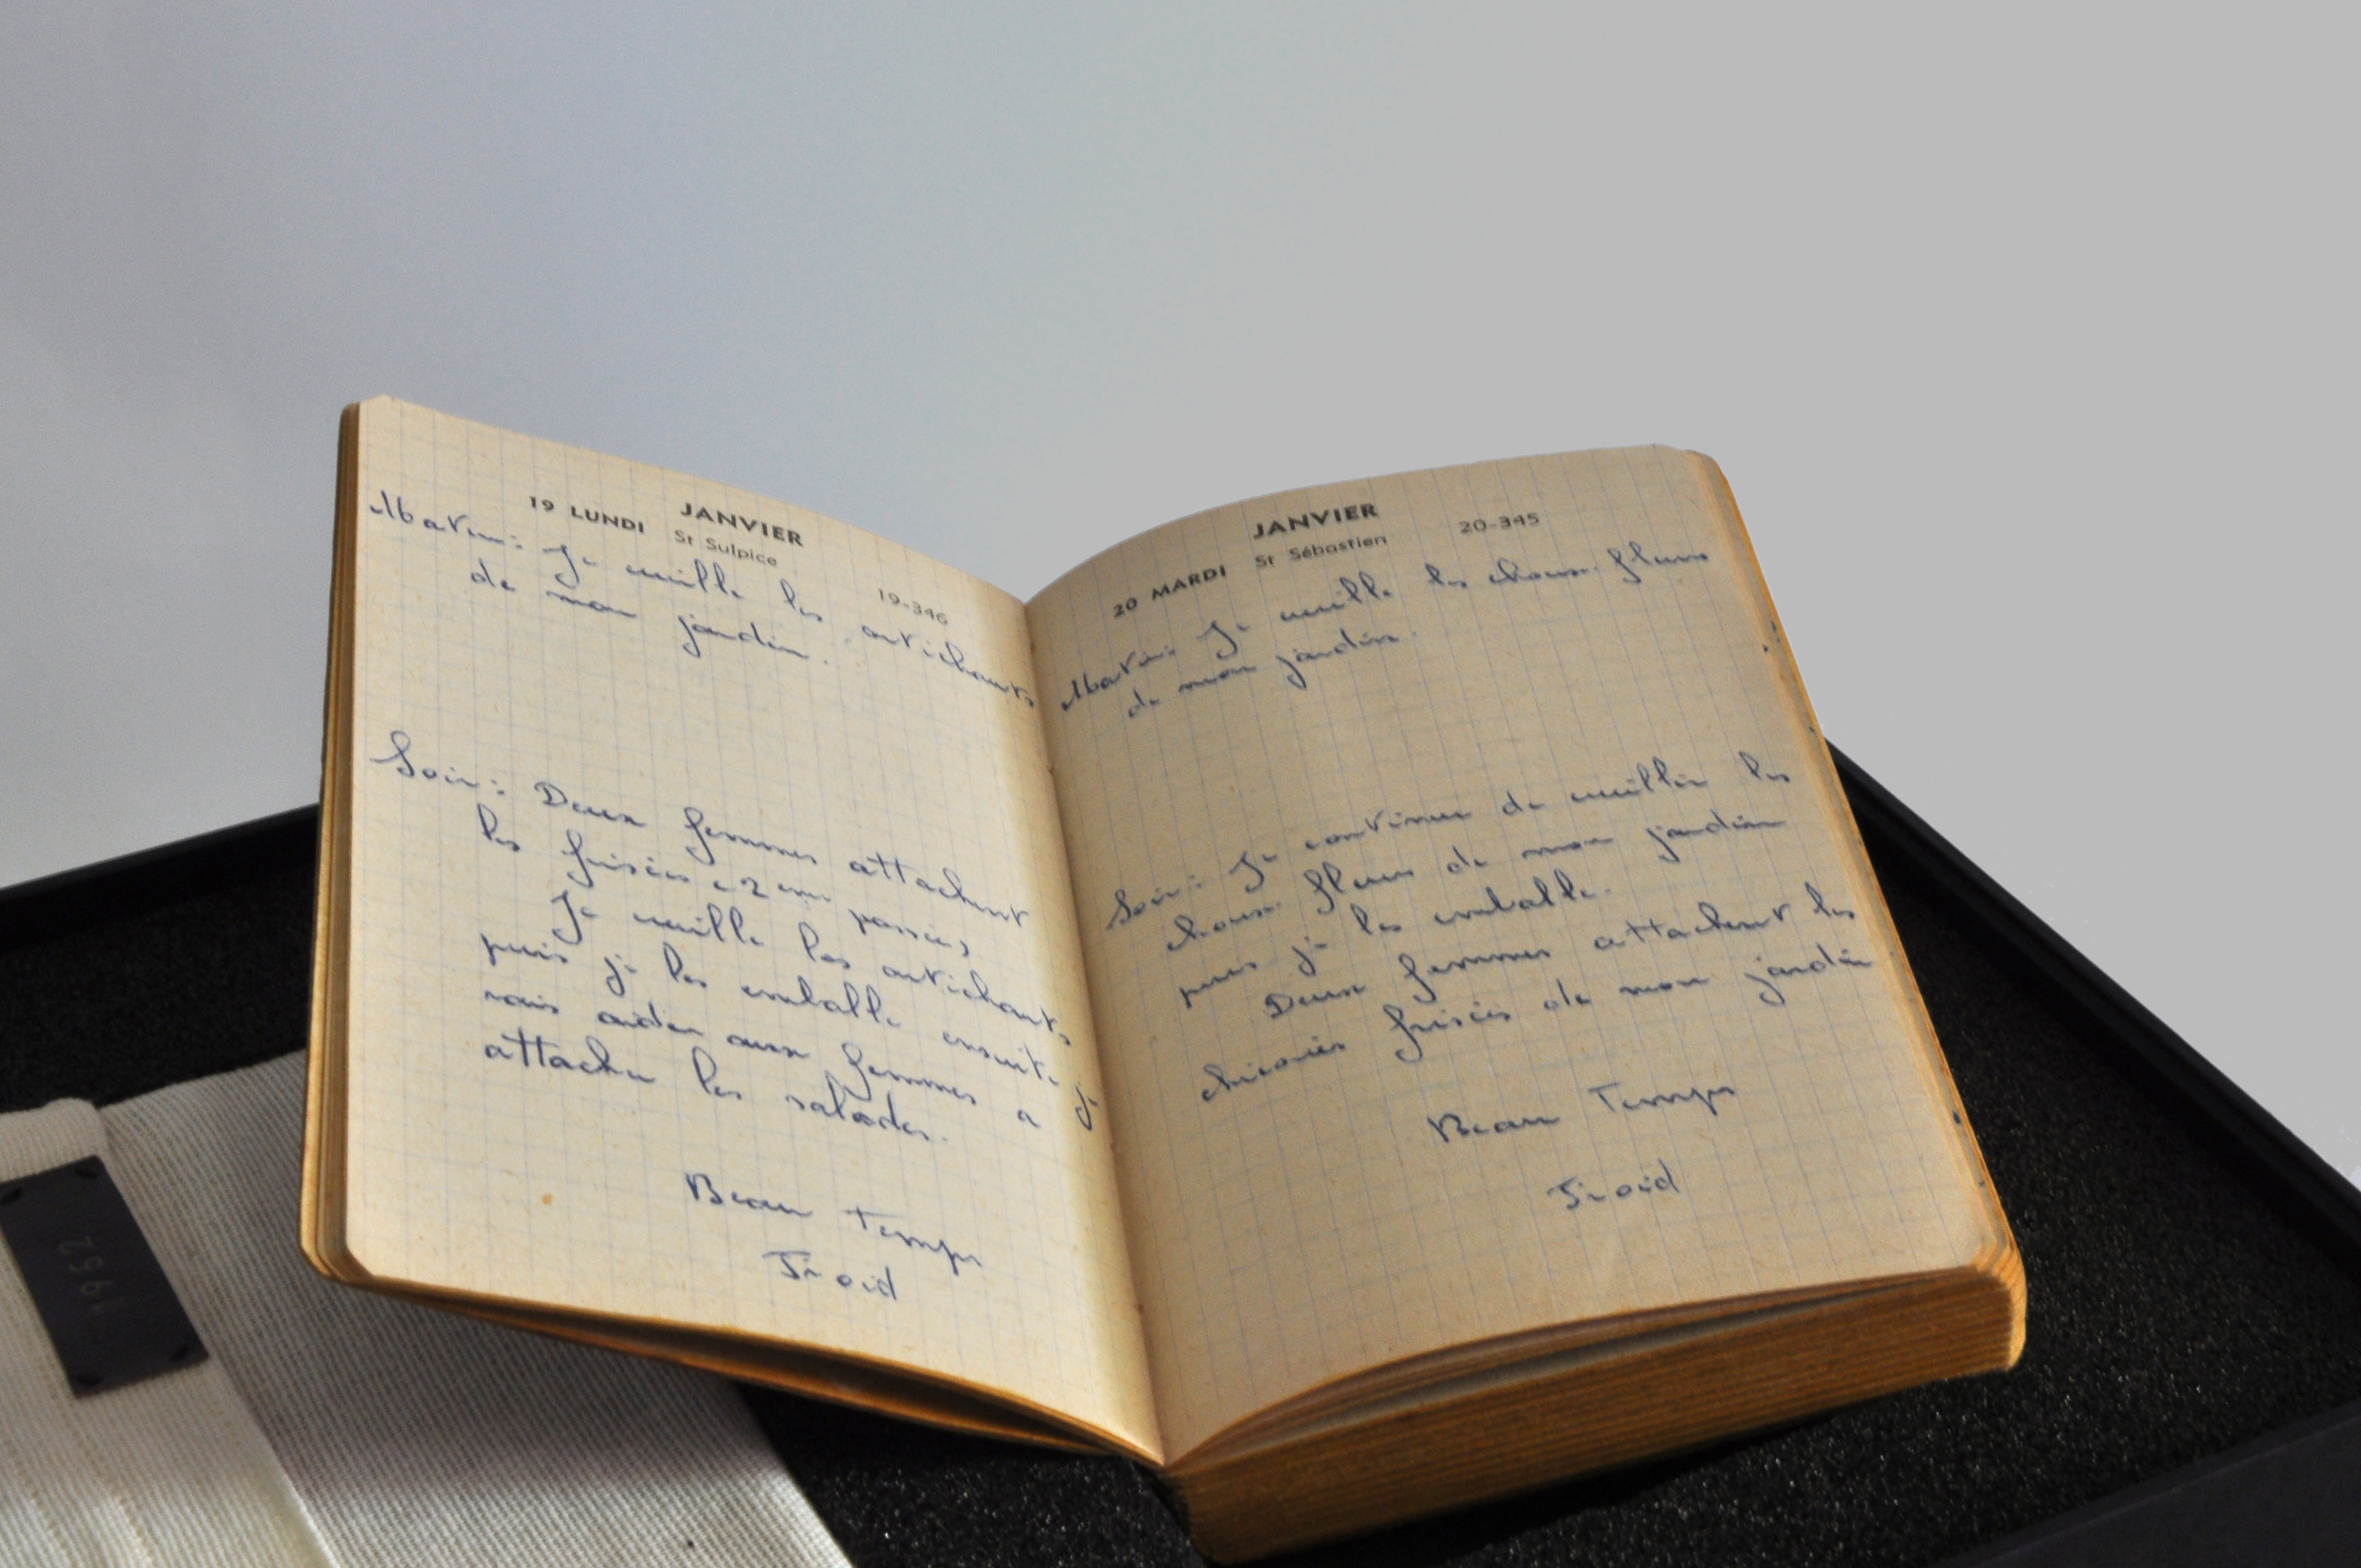 JANVIER
19 LUNDI St Sulpice 19-346
Matin: Je cueille les artichauts
de mon jardin.
Soir: Deux femmes attachent
les frisées 2 em passées,
Je cueille les artichauts
puis je les emballe ensuite je
vais aider aux femmes a
attacher les salades.
Beau Temps
Froid
JANVIER
20 MARDI St Sébastien 20-345
Matin: Je cueille les choux-fleurs
de mon jardin.
Soir: Je continue de cueillir les
choux-fleurs de mon jardin
puis je les emballe.
Deux femmes attachent les
chicorées frisées de mon jardin
Beau Temps
Froid
1952